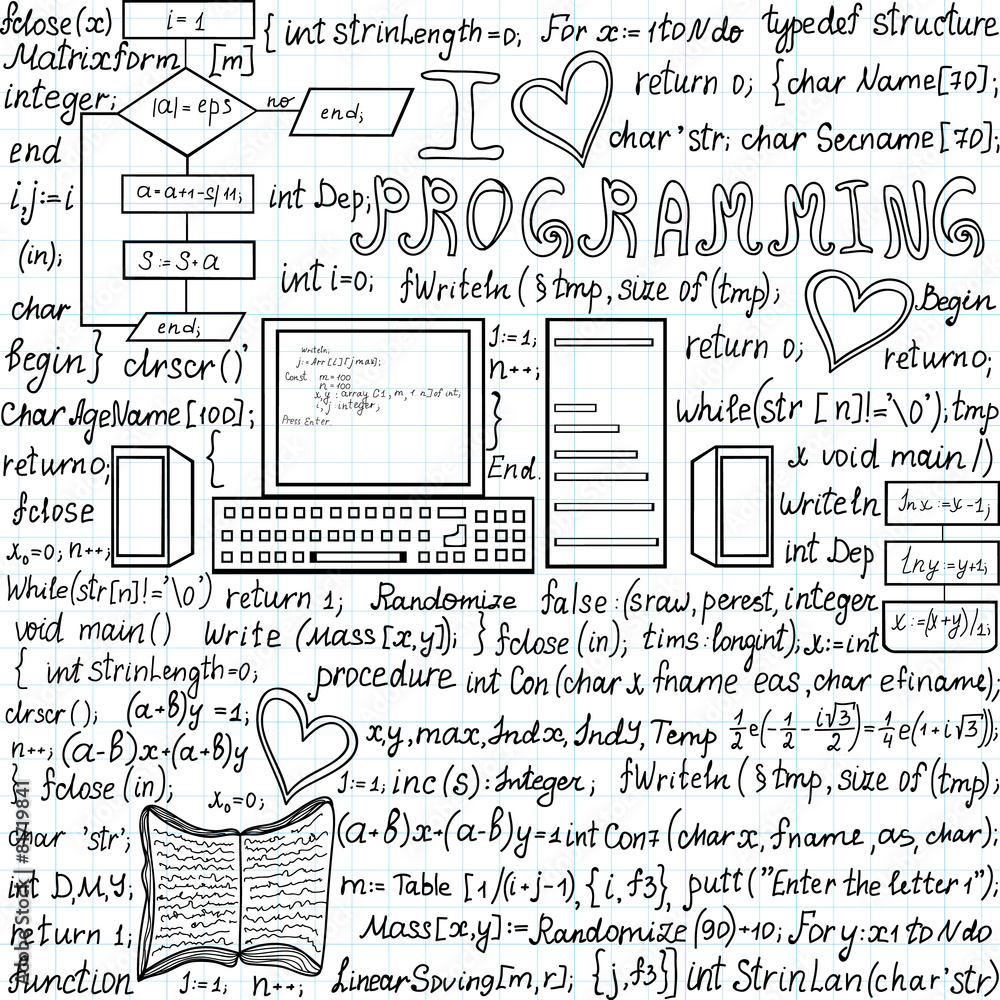 fclose(x)
i = 1
{ int strinLength = 0;
For x:= 1 to N do
typedef structure
Matrixform [m]
integer;
|a| = eps
no
end;
I
return 0;
{char Name[70];
end
char 'str; char Secname [70];
i,j:=i
a=a+1-S/11;
int Dep;
PROGRAMMING
(in);
S:=S+a
int i=0;
fWriteln (§ tmp, size of (tmp);
char
end;
Begin
Begin}
clrscr()'
return 0;
return 0;
Writeln;
j:=Arr [i][j max];
Const m = 100
n = 100
x,y : array [1, m, 1. n] of int,
i,j integer,
Press Enter.
J:=1;
n++;
}
End.
Char AgeName [100];
{
while(str [n]!='\0'); tmp
return 0;
x void main /)
fclose
writeln
Jnx:=x-1;
x₀=0; n++;
int Dep
Lny:=y+1;
While(str[n]!='\0')
return 1;
Randomize
false:(sraw, perest, integer
x:=(x+y)/1;
void main()
Write (Mass [x,y]); }
fclose (in);
tims:longint); x:=int
{ int strinLength=0;
procedure int Con (char x fname eas, char efiname);
clrscr();
(a+b)y =1;
x,y, max, Indx, IndY, Temp
½e(-½-i√3/2)=¼e(1+i√3));
n++; (a-b)x+(a+b)y
} fclose (in);
x₀=0;
J:=1; inc(s): Integer;
fWriteln (§ tmp, size of (tmp);
char 'str';
(a+b)x+(a-b)y=1
int Con7 (char x, fname, as, char);
int D,M,Y;
m:= Table [1/(i+j-1), {i, f3},
putt ("Enter the letter 1");
return 1;
Mass[x,y]:=Randomize (90)+10; For y:x1 to N do
function
J:=1; n++;
LinearSpving[m,r]; {j,f3}]
int StrinLan(char'str)
Adobe Stock | #81719841